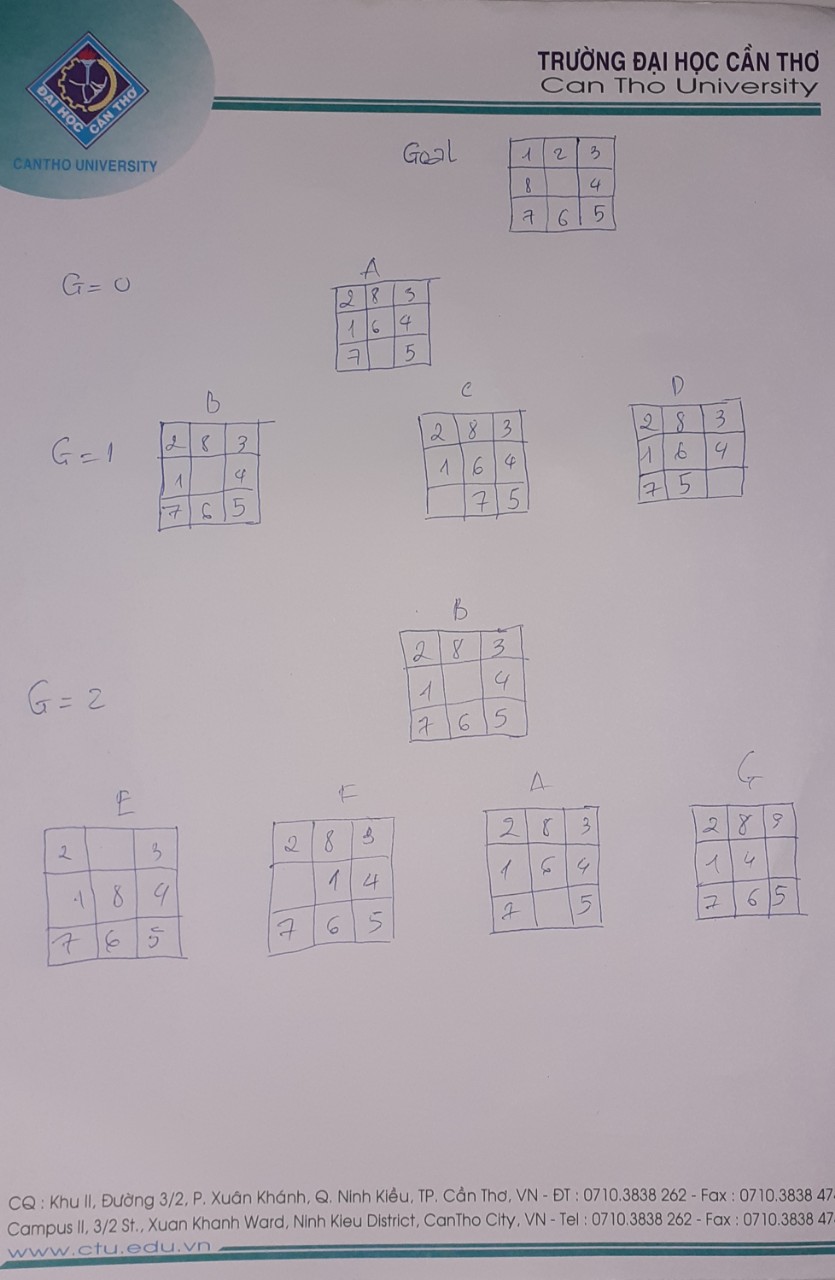 TRƯỜNG ĐẠI HỌC CẦN THƠ
Can Tho University
ĐẠI HỌC CẦN THƠ
CANTHO UNIVERSITY
Goal
1 2 3
8 4
7 6 5
G = 0
A
2 8 3
1 6 4
7 5
G = 1
B
2 8 3
1 4
7 6 5
C
2 8 3
1 6 4
7 5
D
2 8 3
1 6 4
7 5
G = 2
B
2 8 3
1 4
7 6 5
E
2 3
1 8 4
7 6 5
F
2 8 3
1 4
7 6 5
A
2 8 3
1 6 4
7 5
G
2 8 3
1 4
7 6 5
CQ : Khu II, Đường 3/2, P. Xuân Khánh, Q. Ninh Kiều, TP. Cần Thơ, VN - ĐT : 0710.3838 262 - Fax : 0710.3838 47
Campus II, 3/2 St., Xuan Khanh Ward, Ninh Kieu District, CanTho City, VN - Tel : 0710.3838 262 - Fax : 0710.3838 47
www.ctu.edu.vn